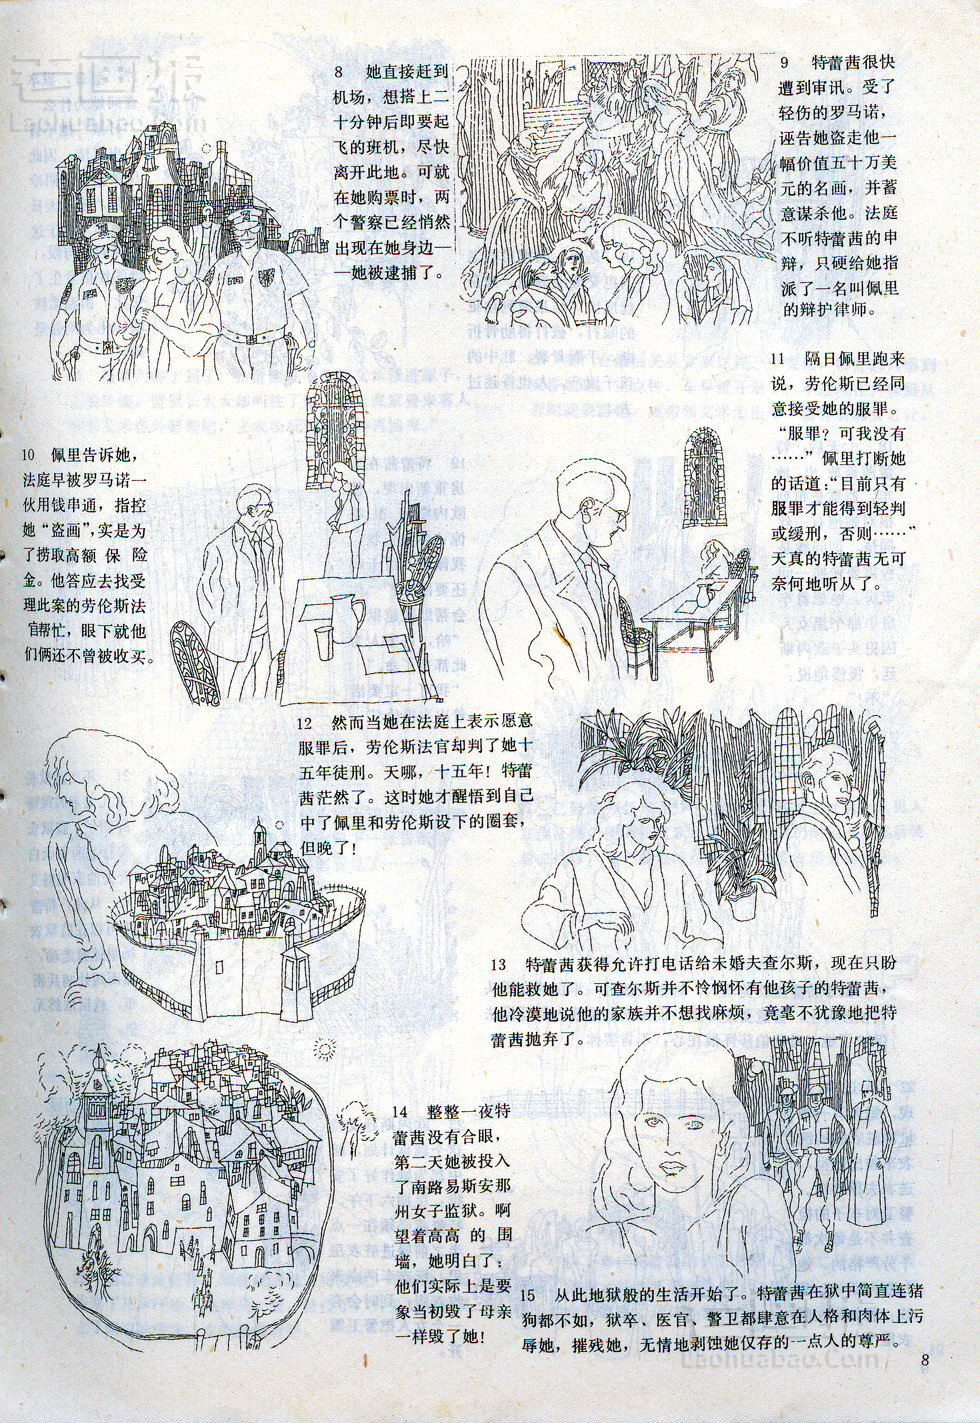 老画报
Laohuabao.Com
8 她直接赶到
机场，想搭上二
十分钟后即要起
飞的班机，尽快
离开此地。可就
在她购票时，两
个警察已经悄然
出现在她身边—
—她被逮捕了。
9 特蕾茜很快
遭到审讯。受了
轻伤的罗马诺，
诬告她盗走他一
幅价值五十万美
元的名画，并蓄
意谋杀他。法庭
不听特蕾茜的申
辩，只硬给她指
派了一名叫佩里
的辩护律师。
10 佩里告诉她，
法庭早被罗马诺一
伙用钱串通，指控
她“盗画”，实是为
了捞取高额保险
金。他答应去找受
理此案的劳伦斯法
官帮忙，眼下就他
们俩还不曾被收买。
11 隔日佩里跑来
说，劳伦斯已经同
意接受她的服罪。
“服罪？可我没有
……”佩里打断她
的话道：“目前只有
服罪才能得到轻判
或缓刑，否则……”
天真的特蕾茜无可
奈何地听从了。
12 然而当她在法庭上表示愿意
服罪后，劳伦斯法官却判了她十
五年徒刑。天哪，十五年！特蕾
茜茫然了。这时她才醒悟到自己
中了佩里和劳伦斯设下的圈套，
但晚了！
13 特蕾茜获得允许打电话给未婚夫查尔斯，现在只盼
他能救她了。可查尔斯并不怜悯怀有他孩子的特蕾茜，
他冷漠地说他的家族并不想找麻烦，竟毫不犹豫地把特
蕾茜抛弃了。
14 整整一夜特
蕾茜没有合眼，
第二天她被投入
了南路易斯安那
州女子监狱。啊
望着高高的围
墙，她明白了：
他们实际上是要
象当初毁了母亲
一样毁了她！
15 从此地狱般的生活开始了。特蕾茜在狱中简直连猪
狗都不如，狱卒、医官、警卫都肆意在人格和肉体上污
辱她，摧残她，无情地剥蚀她仅存的一点人的尊严。
Laohuabao.Com
8